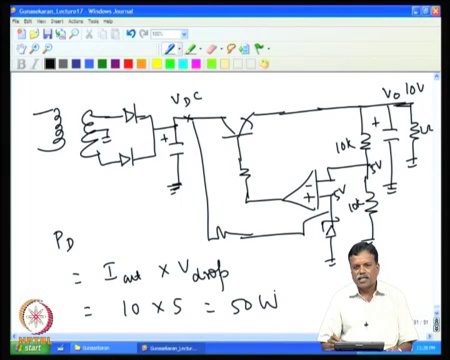 Gunasekaran_Lecture17 - Windows Journal
File Edit View Insert Actions Tools Help
100%
B I
VDC
Vo 10V
10k
5V
5V
10k
PD
= Iout × Vdrop
= 10 × 5 = 50W
NPTEL
start
Gunasekaran
Gunasekaran_Lectur...